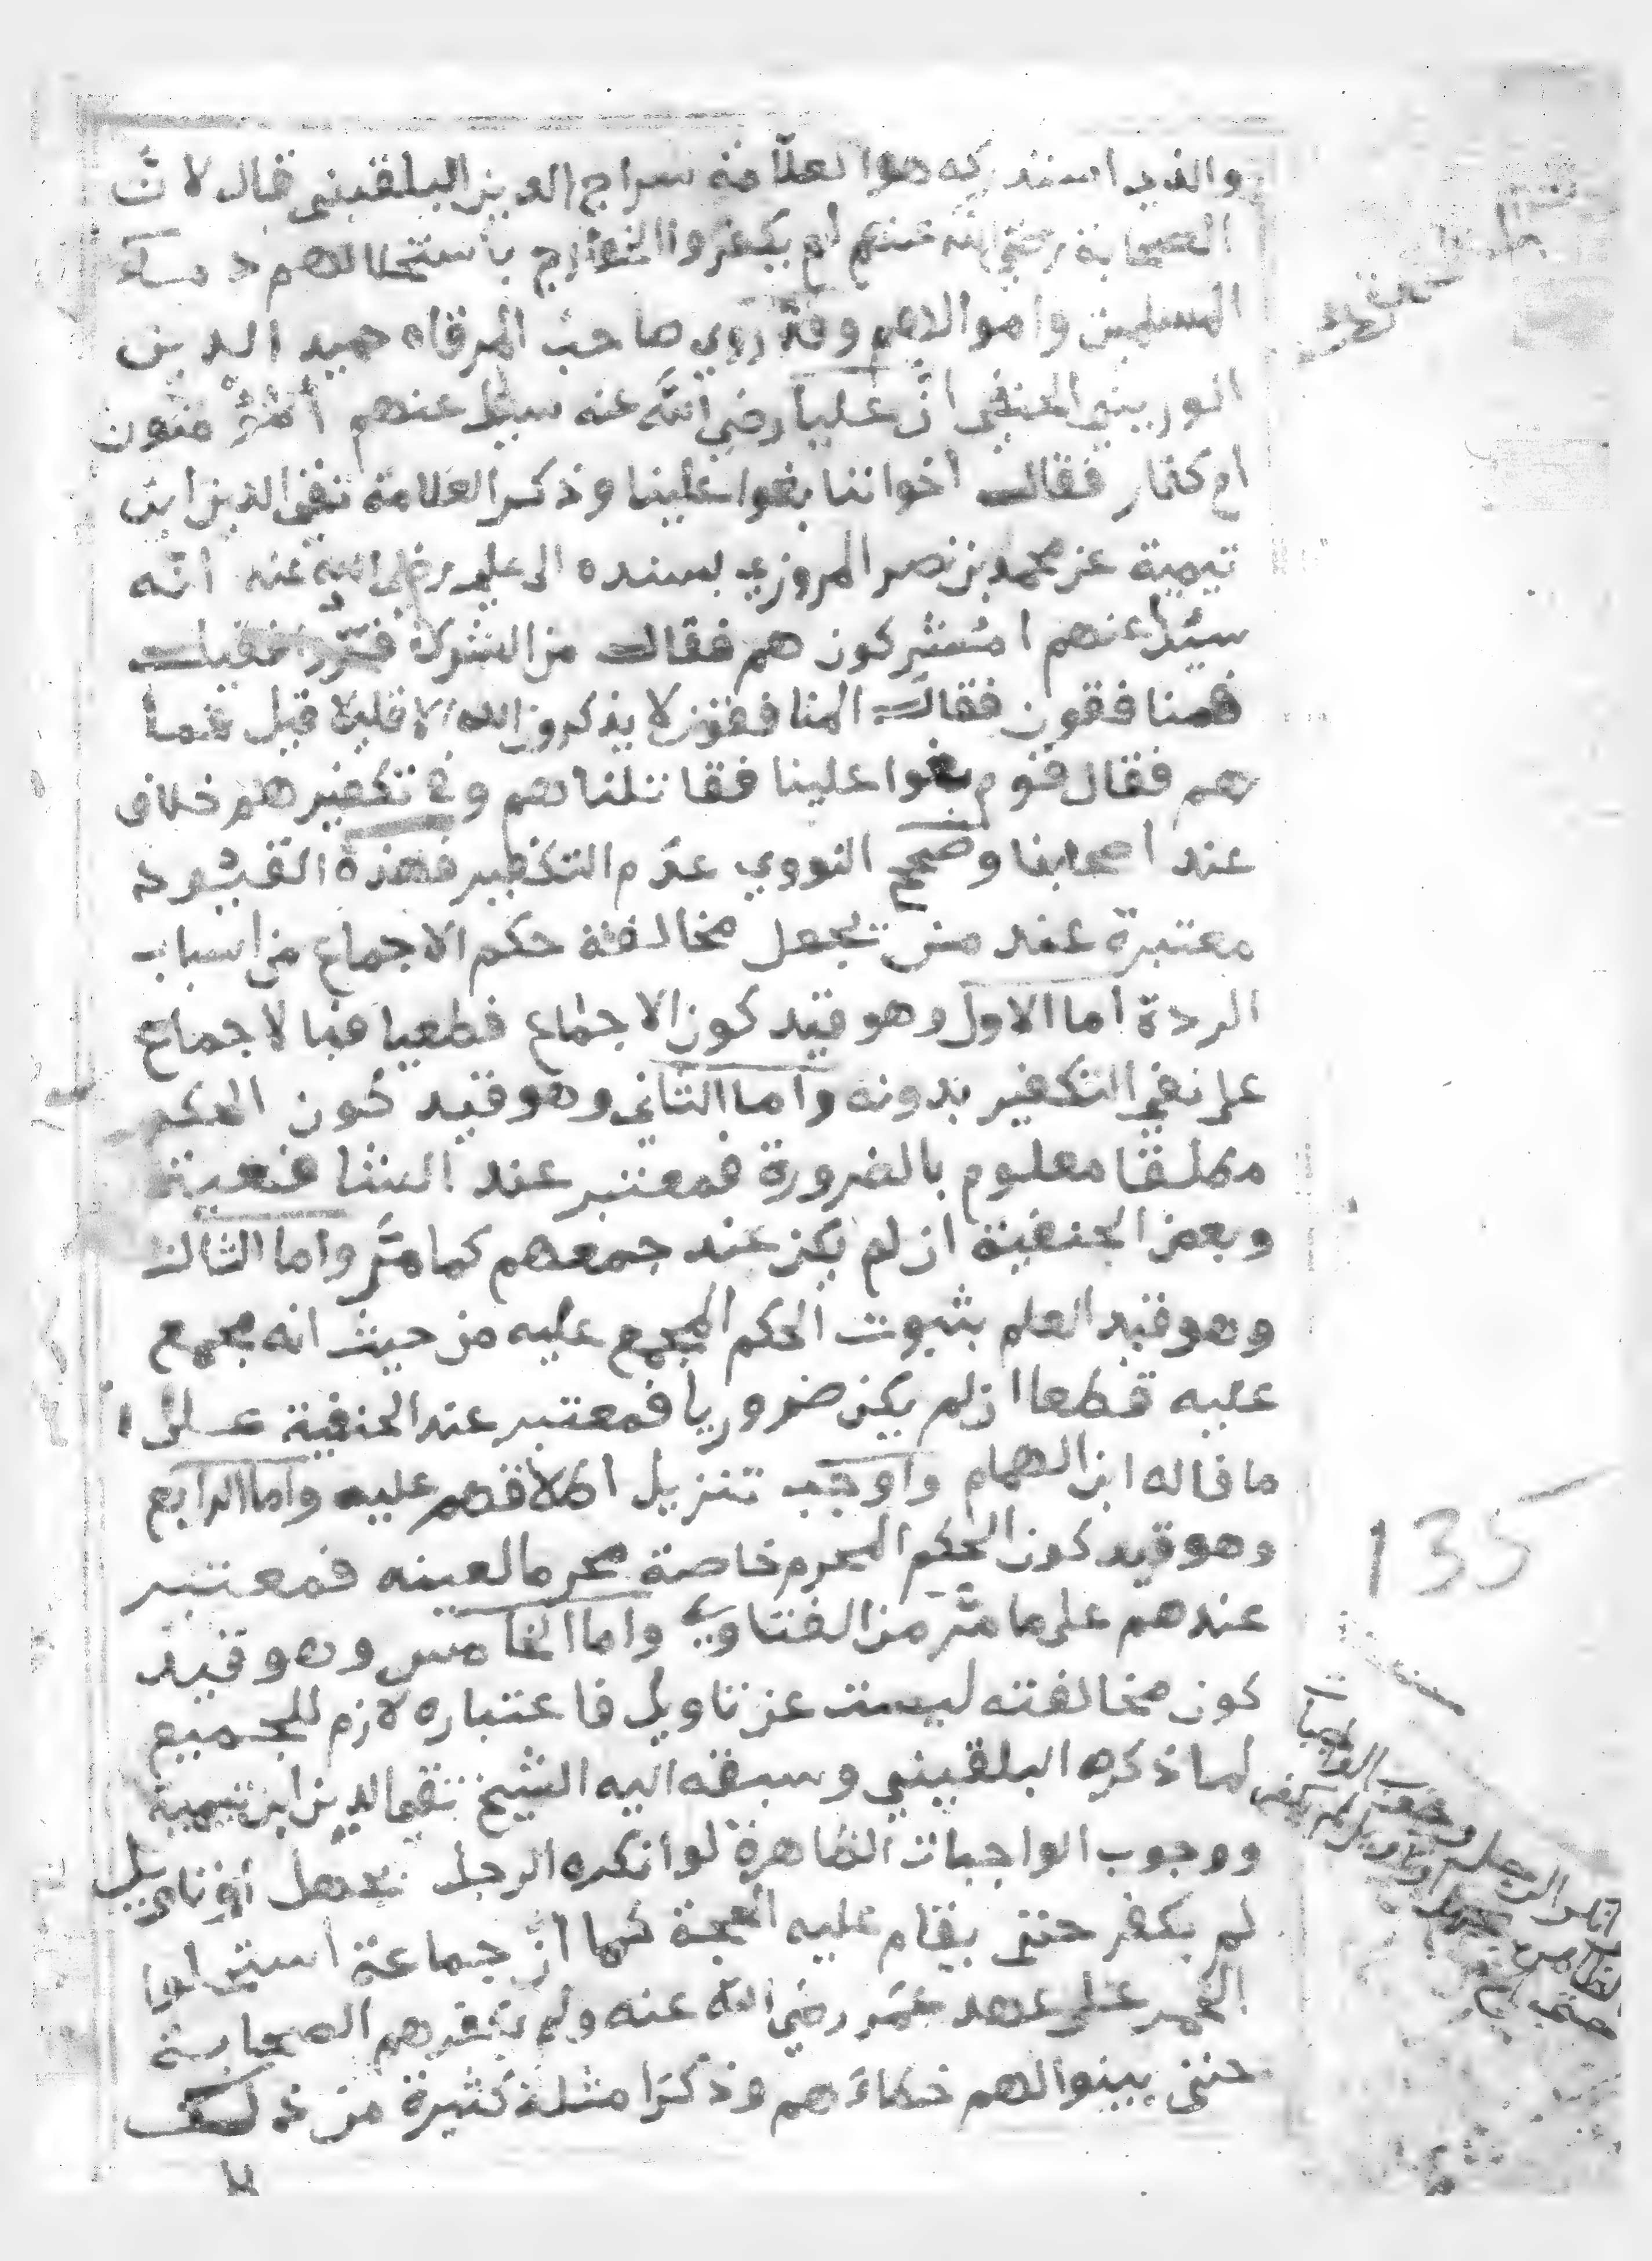 والذي استدركه هو العلامة سراج الدين البلقيني قال لان
الصحابة رضي الله عنهم لم يكفروا الخوارج باستحلالهم دماء
المسلمين واموالهم وقد روي صاحب المرقاه حميد الدين
الحنفي ان عليا رضي الله عنه سيل عنهم أمؤمنون
ام كفار فقال اخواننا بغوا علينا وذكر العلامة تقي الدين ابن
تيمية عن محمد بن نصر المروزي بسنده الى علي رضي الله عنه انه
سيل عنهم امشركون هم فقال من الشرك فروا فقيل
فمنافقون فقال المنافقون لا يذكرون الله الا قليلا قيل فما
هم فقال قوم بغوا علينا فقاتلناهم وفي تكفيرهم خلاف
عند اصحابنا وصحح النووي عدم التكفير فهذه القيود
معتبرة عند من يجعل مخالفة حكم الاجماع من اسباب
الردة اما الاول وهو قيد كون الاجماع قطعيا فبالاجماع
على نفي التكفير بدونه واما الثاني وهو قيد كون الحكم
مطلقا معلوم بالضرورة فمعتبر عند الشافعية
وبعض الحنفية ان لم يكن عند جمعهم كما مر واما الثالث
وهو قيد العلم بثبوت الحكم المجمع عليه من حيث انه مجمع
عليه قطعا ان لم يكن ضروريا فمعتبر عند الحنفية على
ما قاله ابن الهمام واوجب تنزيل اطلاقهم عليه واما الرابع
وهو قيد كون الحكم المحرم خاصة محرما لعينه فمعتبر
عندهم على ما مر من الفتاوي واما الخامس وهو قيد
كون مخالفته ليست عن تاويل فاعتباره لازم للجميع
لما ذكره البلقيني وسبقه اليه الشيخ تقي الدين ابن تيمية
ووجوب الواجبات الظاهرة لو انكره الرجل بجهل او تاويل
لم يكفر حتى يقام عليه الحجة كما ان جماعة استحلوا
الخمر على عهد عمر رضي الله عنه ولم تكفرهم الصحابة
حتى بينوا لهم خطاءهم وذكر امثلة كثيرة من ذلك
135